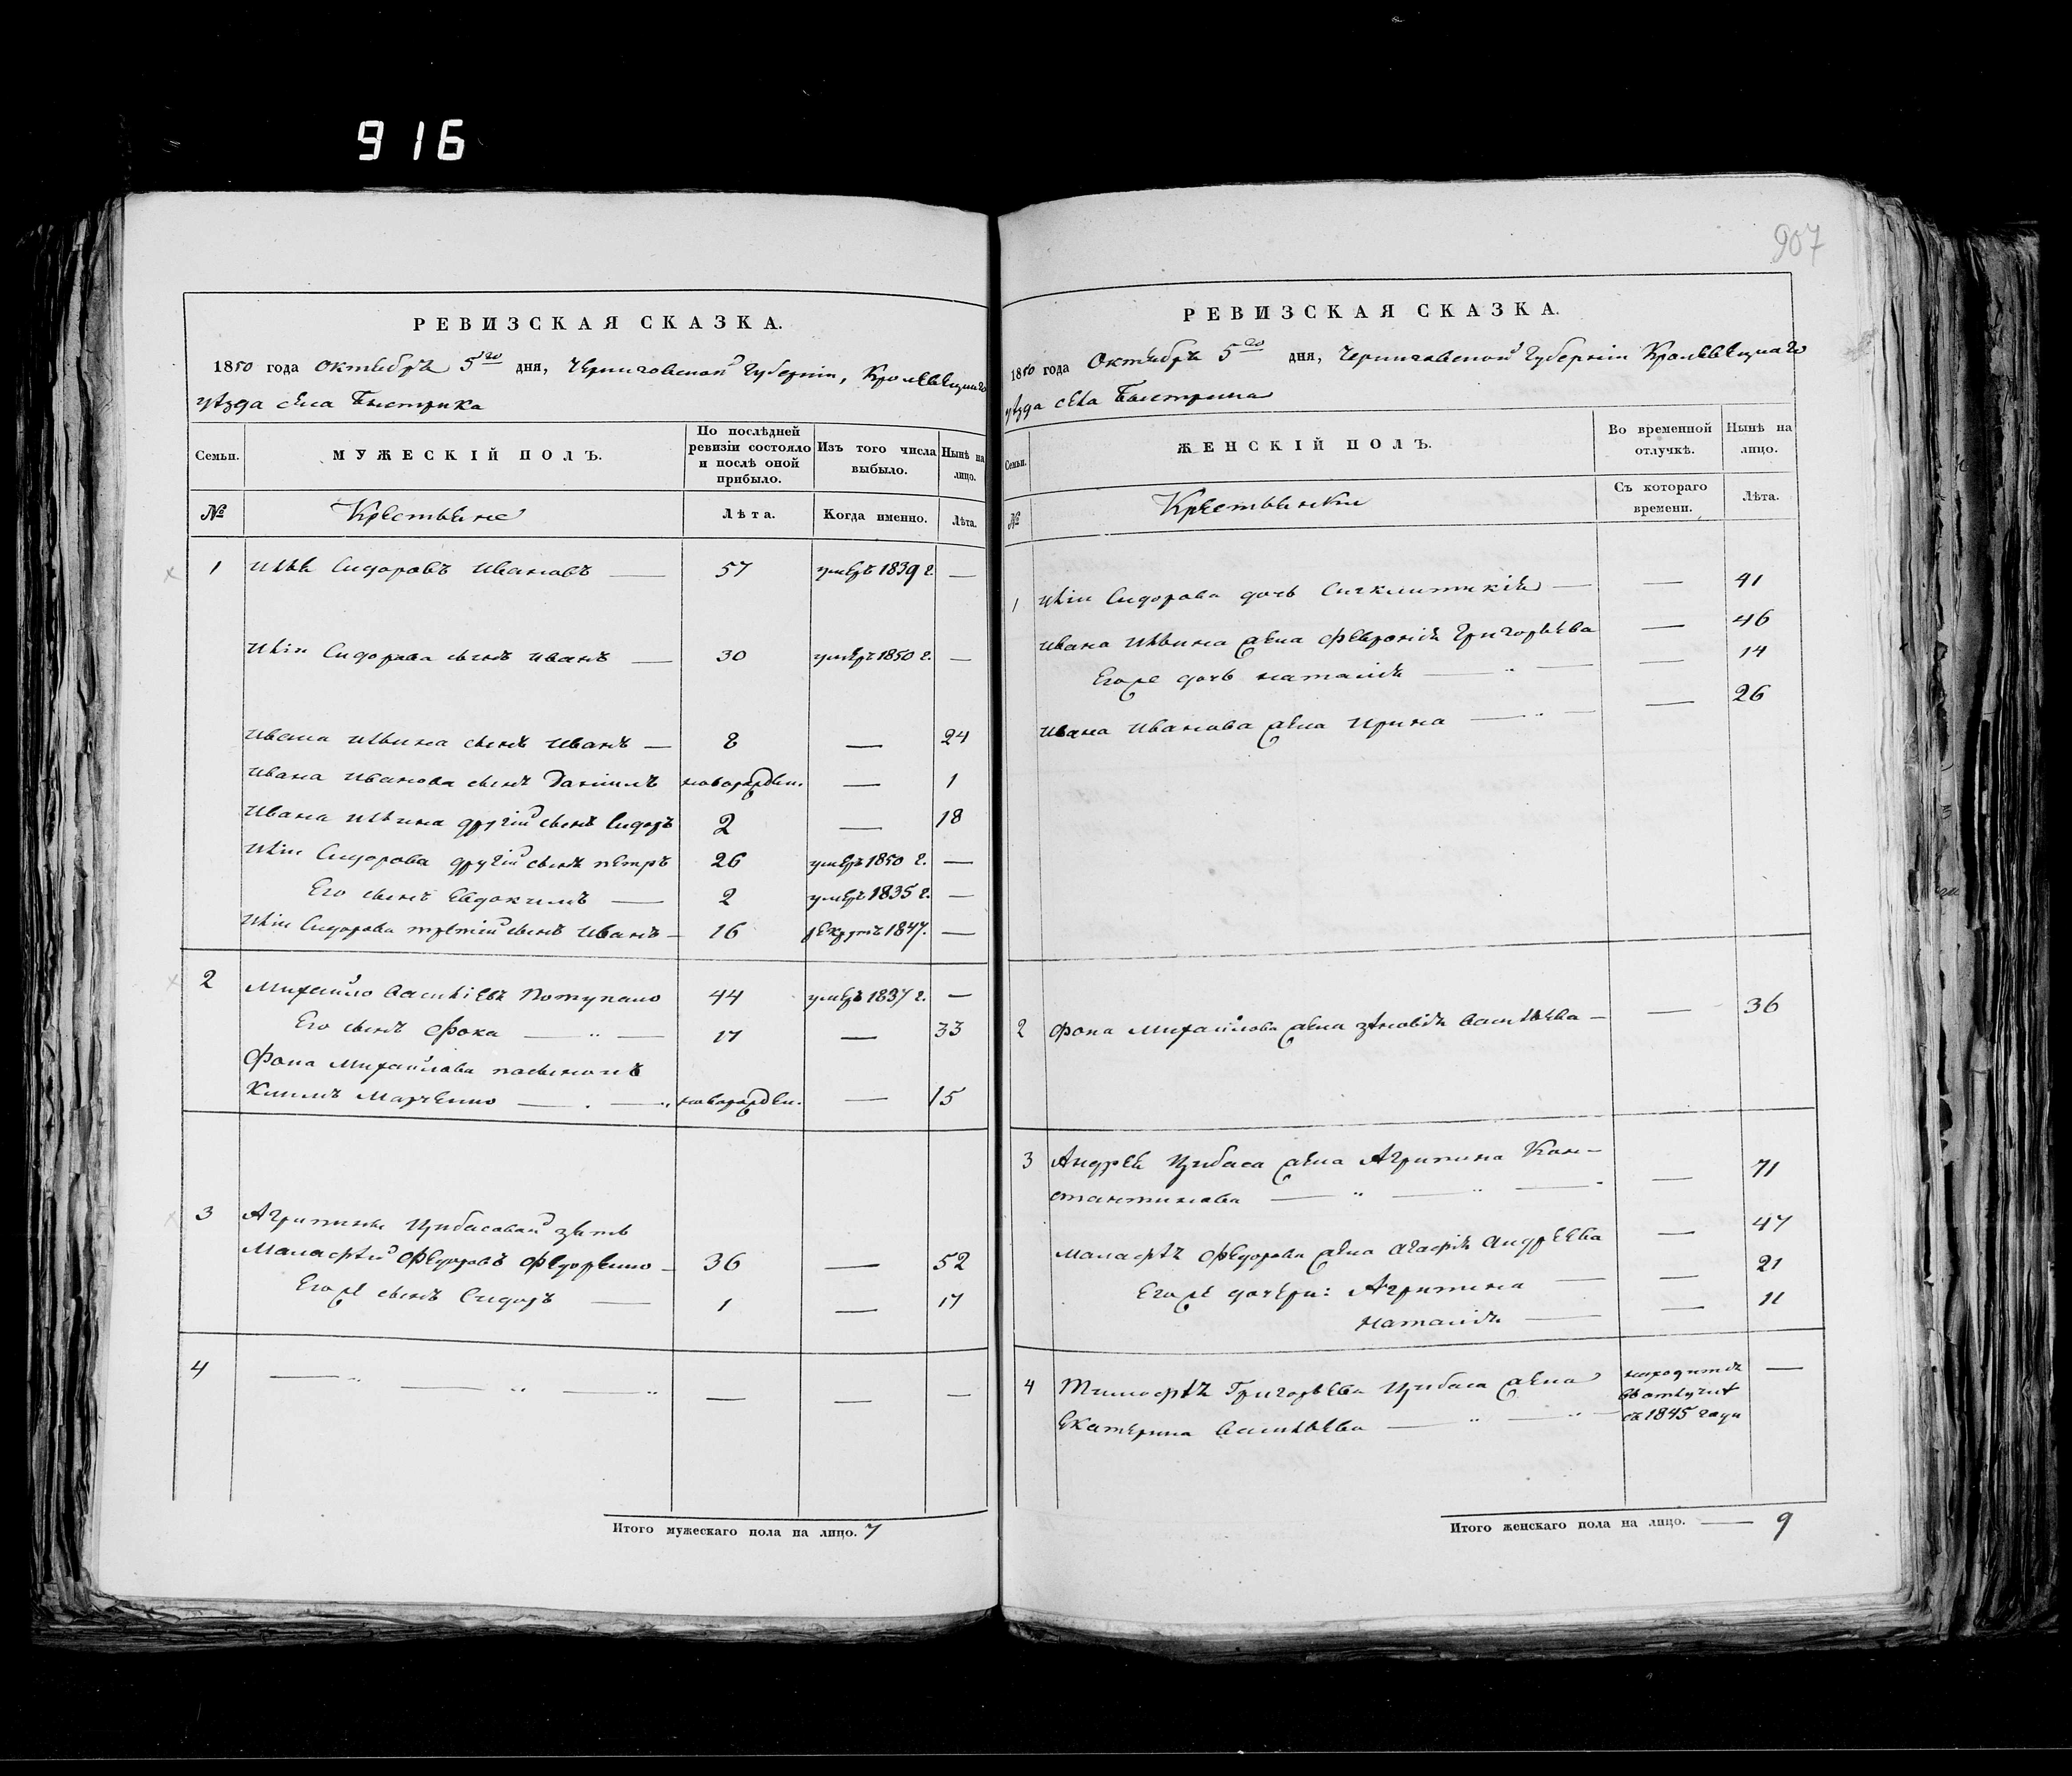 916
907
РЕВИЗСКАЯ СКАЗКА.
1850 года Октября 5го дня, Черниговской Губерніи, Кролевецкаго
уѣзда села Быстрика
Семьи.
МУЖЕСКІЙ ПОЛЪ.
По послѣдней ревизіи состояло и послѣ оной прибыло.
Изъ того числа выбыло.
Нынѣ на лицо.
№
Крестьяне
Лѣта.
Когда именно.
Лѣта.
1 Илья Сидоровъ Ивановъ — 57 умеръ 1839 г. —
Ильи Сидорова сынъ Иванъ — 30 умеръ 1850 г. —
Ивана Ильина сынъ Иванъ — 8 — 24
Ивана Иванова сынъ Даніилъ новорожден. — 1
Ивана Ильина другій сынъ Сидоръ 2 — 18
Ильи Сидорова другій сынъ Петръ 26 умеръ 1850 г. —
Его сынъ Евдокимъ — 2 умеръ 1835 г. —
Ильи Сидорова третій сынъ Иванъ — 16 рекрутъ 1847. —
2 Михайло Василіевъ Потупало 44 умеръ 1837 г. —
Его сынъ Фока — „ — 17 — 33
Фока Михайлова пасынокъ
Климъ Марченко — . — „ новорожден. — 15
3 Агрипины Цибасовой зять
Малафѣй Федоровъ Федоренко — 36 — 52
Егоже сынъ Сидоръ — 1 — 17
4 — „ — „ — „ — — —
Итого мужескаго пола на лицо. 7
РЕВИЗСКАЯ СКАЗКА.
1850 года Октября 5го дня, Черниговской Губерніи Кролевецкаго
уѣзда села Быстрика
Семьи.
ЖЕНСКІЙ ПОЛЪ.
Во временной отлучкѣ.
Нынѣ на лицо.
№
Крестьянки
Съ котораго времени.
Лѣта.
1 Ильи Сидорова дочь Синклитикія — — 41
Ивана Ильина жена Февронія Григорьева — 46
Егоже дочь Наталія — „ — — 14
Ивана Иванова жена Ирина — „ — — 26
2 Фока Михайлова жена Зѣновія Васильева — — 36
3 Андрея Цибаса жена Агрипина Кон-
стантинова — „ — „ — — 71
Малафѣя Федорова жена Агафія Андреева — 47
Егоже дочери: Агрипина — — 21
Наталія — — 11
4 Тимофѣя Григорьева Цибаса жена находится —
Екатерина Васильева — „ — „ — въ отлучкѣ
съ 1845 года
Итого женскаго пола на лицо. — 9